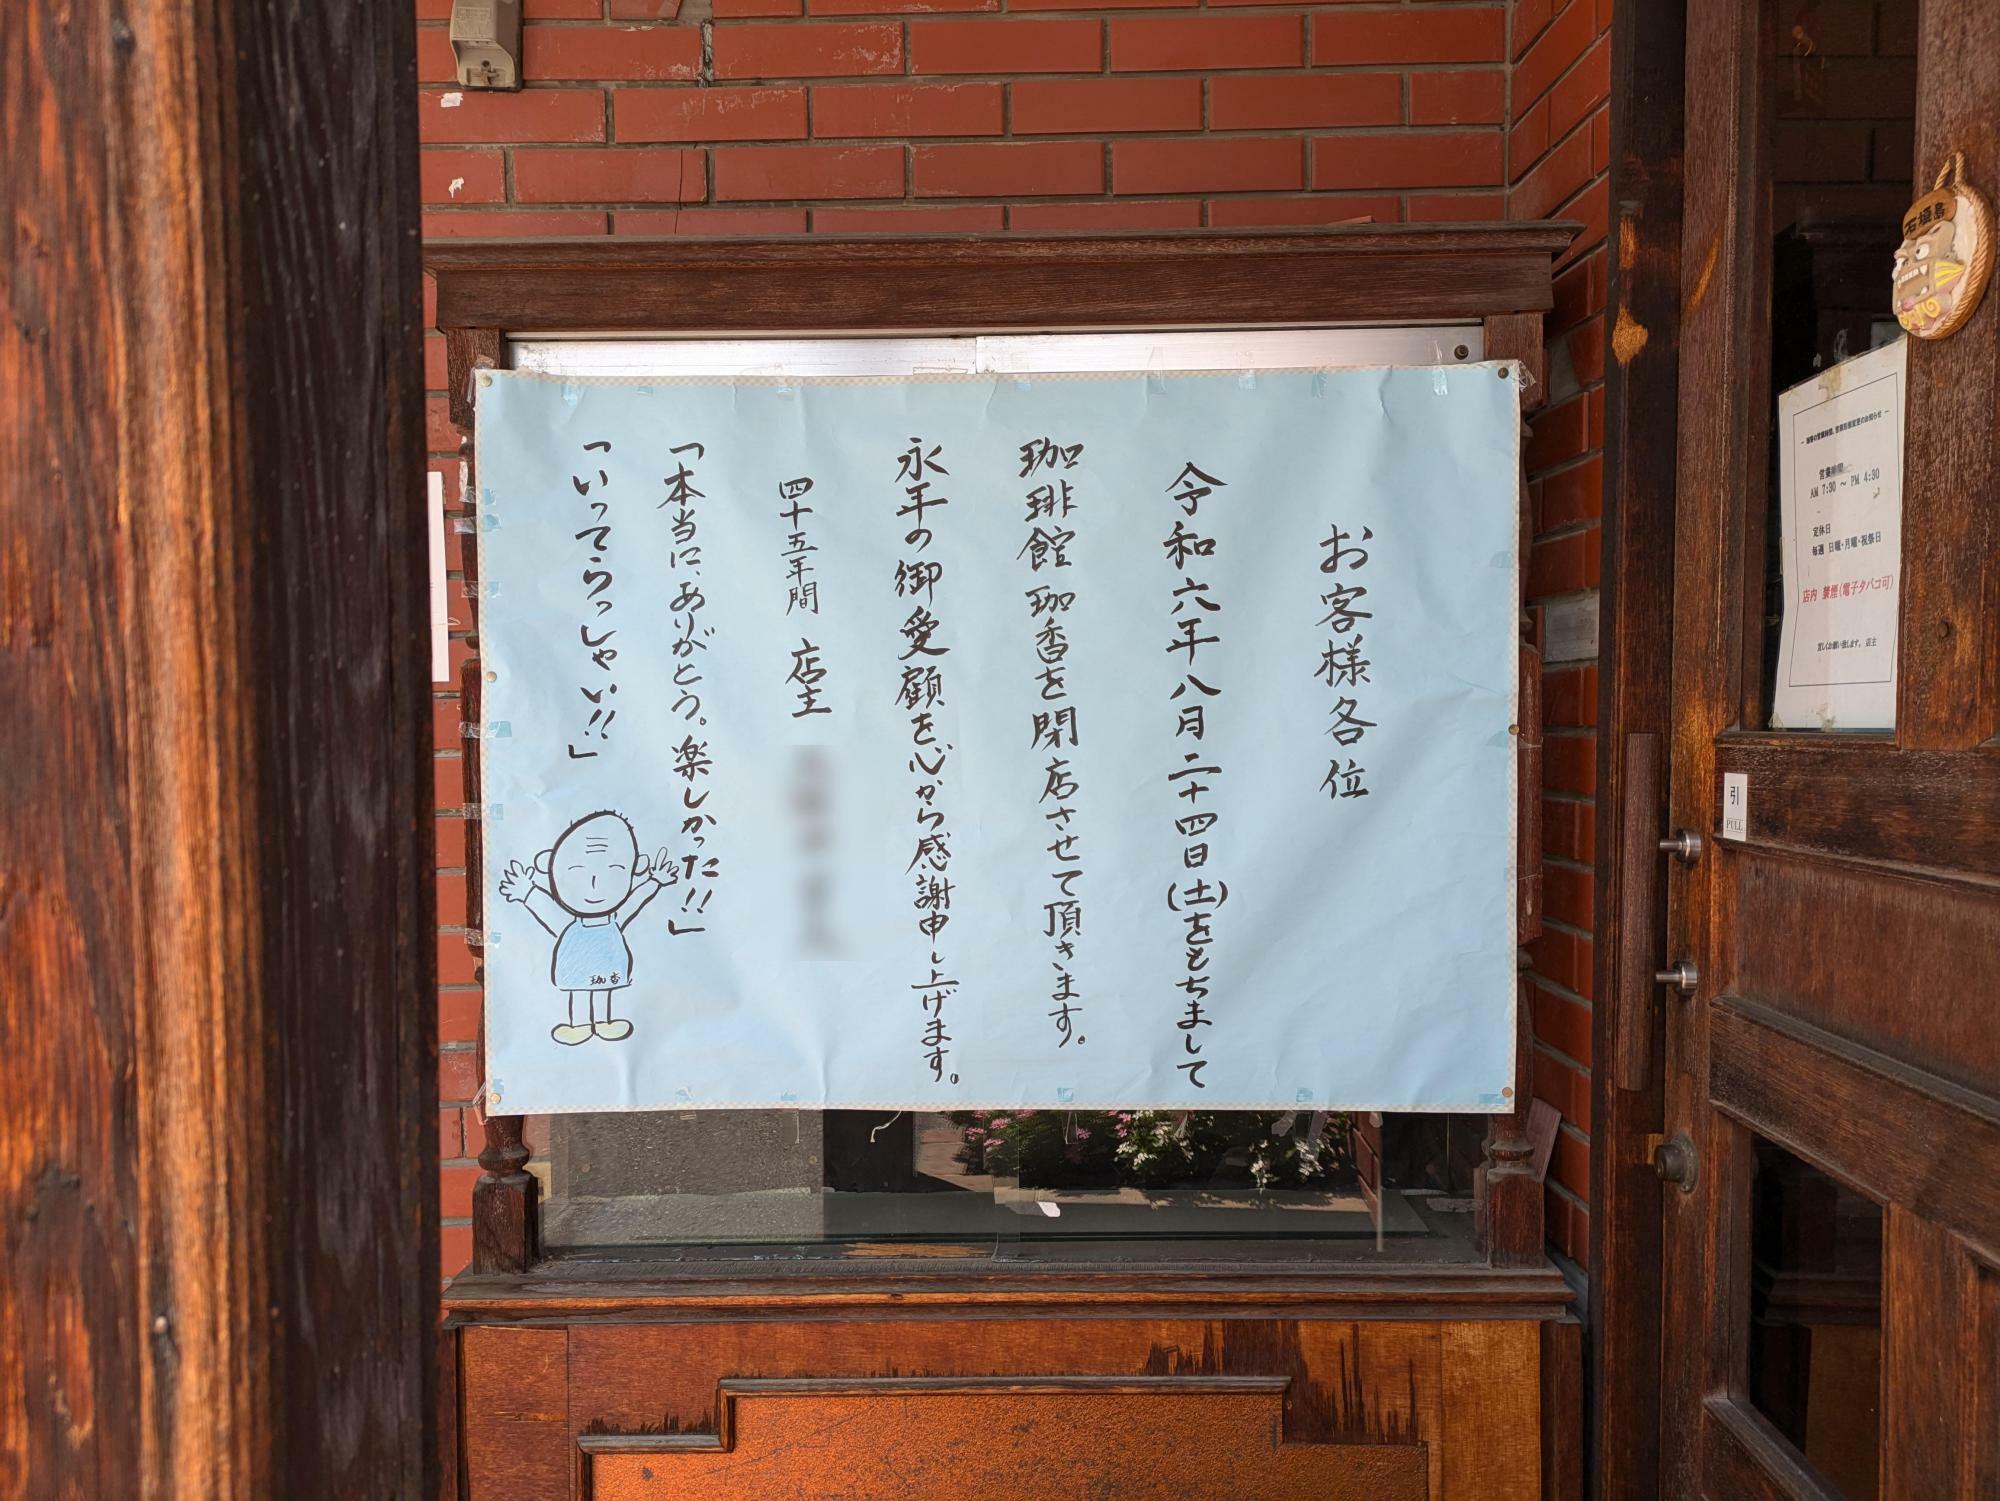 お客様各位
令和六年八月二十四日(土)をもちまして
珈琲館 珈香を閉店させて頂きます。
永年の御愛顧を心から感謝申し上げます。
四十五年間 店主
「本当に、ありがとう。楽しかった!!」
「いってらっしゃい!!」
珈香
石垣島
営業時間
AM 7:30 ～ PM 4:30
定休日
毎週 日曜・月曜・祝祭日
店内 禁煙(電子タバコ可)
宜しくお願い致します。 店主
引
PULL